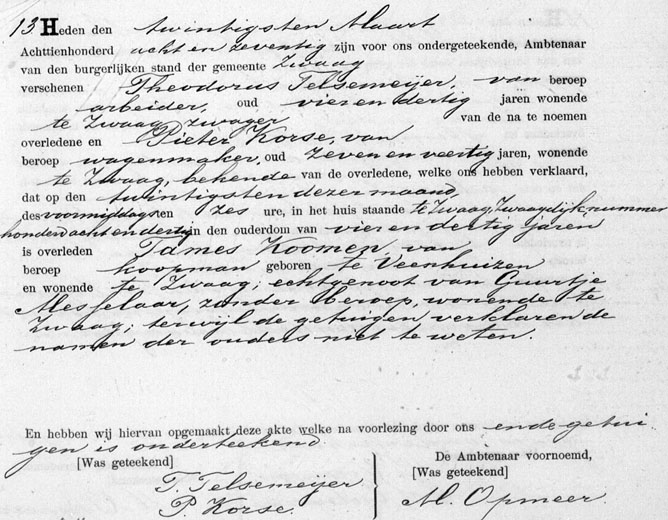 13 Heden den twintigsten Maart
Achttienhonderd acht en zeventig zijn voor ons ondergeteekende, Ambtenaar
van den burgerlijken stand der gemeente Zwaag
verschenen Theodorus Telsemeijer, van beroep
arbeider, oud vier en dertig jaren wonende
te Zwaag, zwager van de na te noemen
overledene en Pieter Korse, van
beroep wagenmaker, oud zeven en veertig jaren, wonende
te Zwaag, bekende van de overledene, welke ons hebben verklaard,
dat op den twintigsten dezer maand,
des voormiddags ten zes ure, in het huis staande te Zwaag, Zwaagdijk nummer
honderd acht en dertig in den ouderdom van vier en dertig jaren
is overleden James Koomen, van
beroep koopman geboren te Veenhuizen
en wonende te Zwaag; echtgenoot van Guurtje
Messelaar, zonder beroep, wonende te
Zwaag; terwijl de getuigen verklaren de
namen der ouders niet te weten.
En hebben wij hiervan opgemaakt deze akte welke na voorlezing door ons en de getui-
gen is onderteekend
[Was geteekend]
T. Telsemeijer
P. Korse.
De Ambtenaar voornoemd,
[Was geteekend]
M. Opmeer.